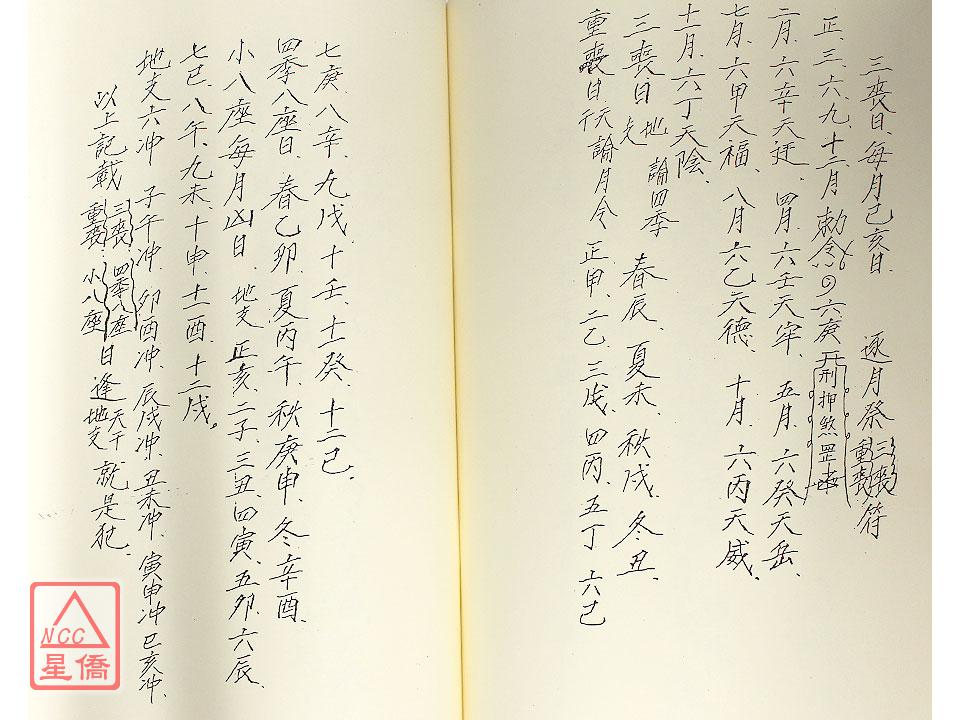 三喪日、每月己亥日、 逐月祭三喪重喪符
正、三、六、九、十二月 勅令 六庚天刑 押煞罡
二月、六辛天廷、 四月、六壬天牢、 五月、六癸天岳、
七月、六甲天福、 八月六乙天德、 十月、六丙天威、
十一月、六丁天陰、
三喪日地支 論四季 春辰、夏未、秋戌、冬丑、
重喪日天干論月令 正甲、二乙、三戊、四丙、五丁、六己
七庚、八辛、九戊、十壬、十一癸、十二己、
四季八座日、春乙卯、夏丙午、秋庚申、冬辛酉、
小八座每月凶日、地支 正亥、二子、三丑、四寅、五卯、六辰、
七巳、八午、九未、十申、十一酉、十二戌。
地支六冲 子午冲、卯酉冲、辰戌冲、丑未冲、寅申冲、巳亥冲、
以上記載 三喪 重喪、四季八座 小八座 日逢天干地支、就是犯、
NCC
星僑